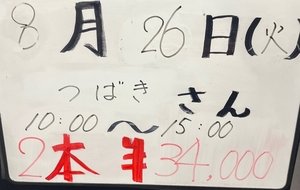 8月26日(火)
つばきさん
10:00～15:00
2本 ¥34,000